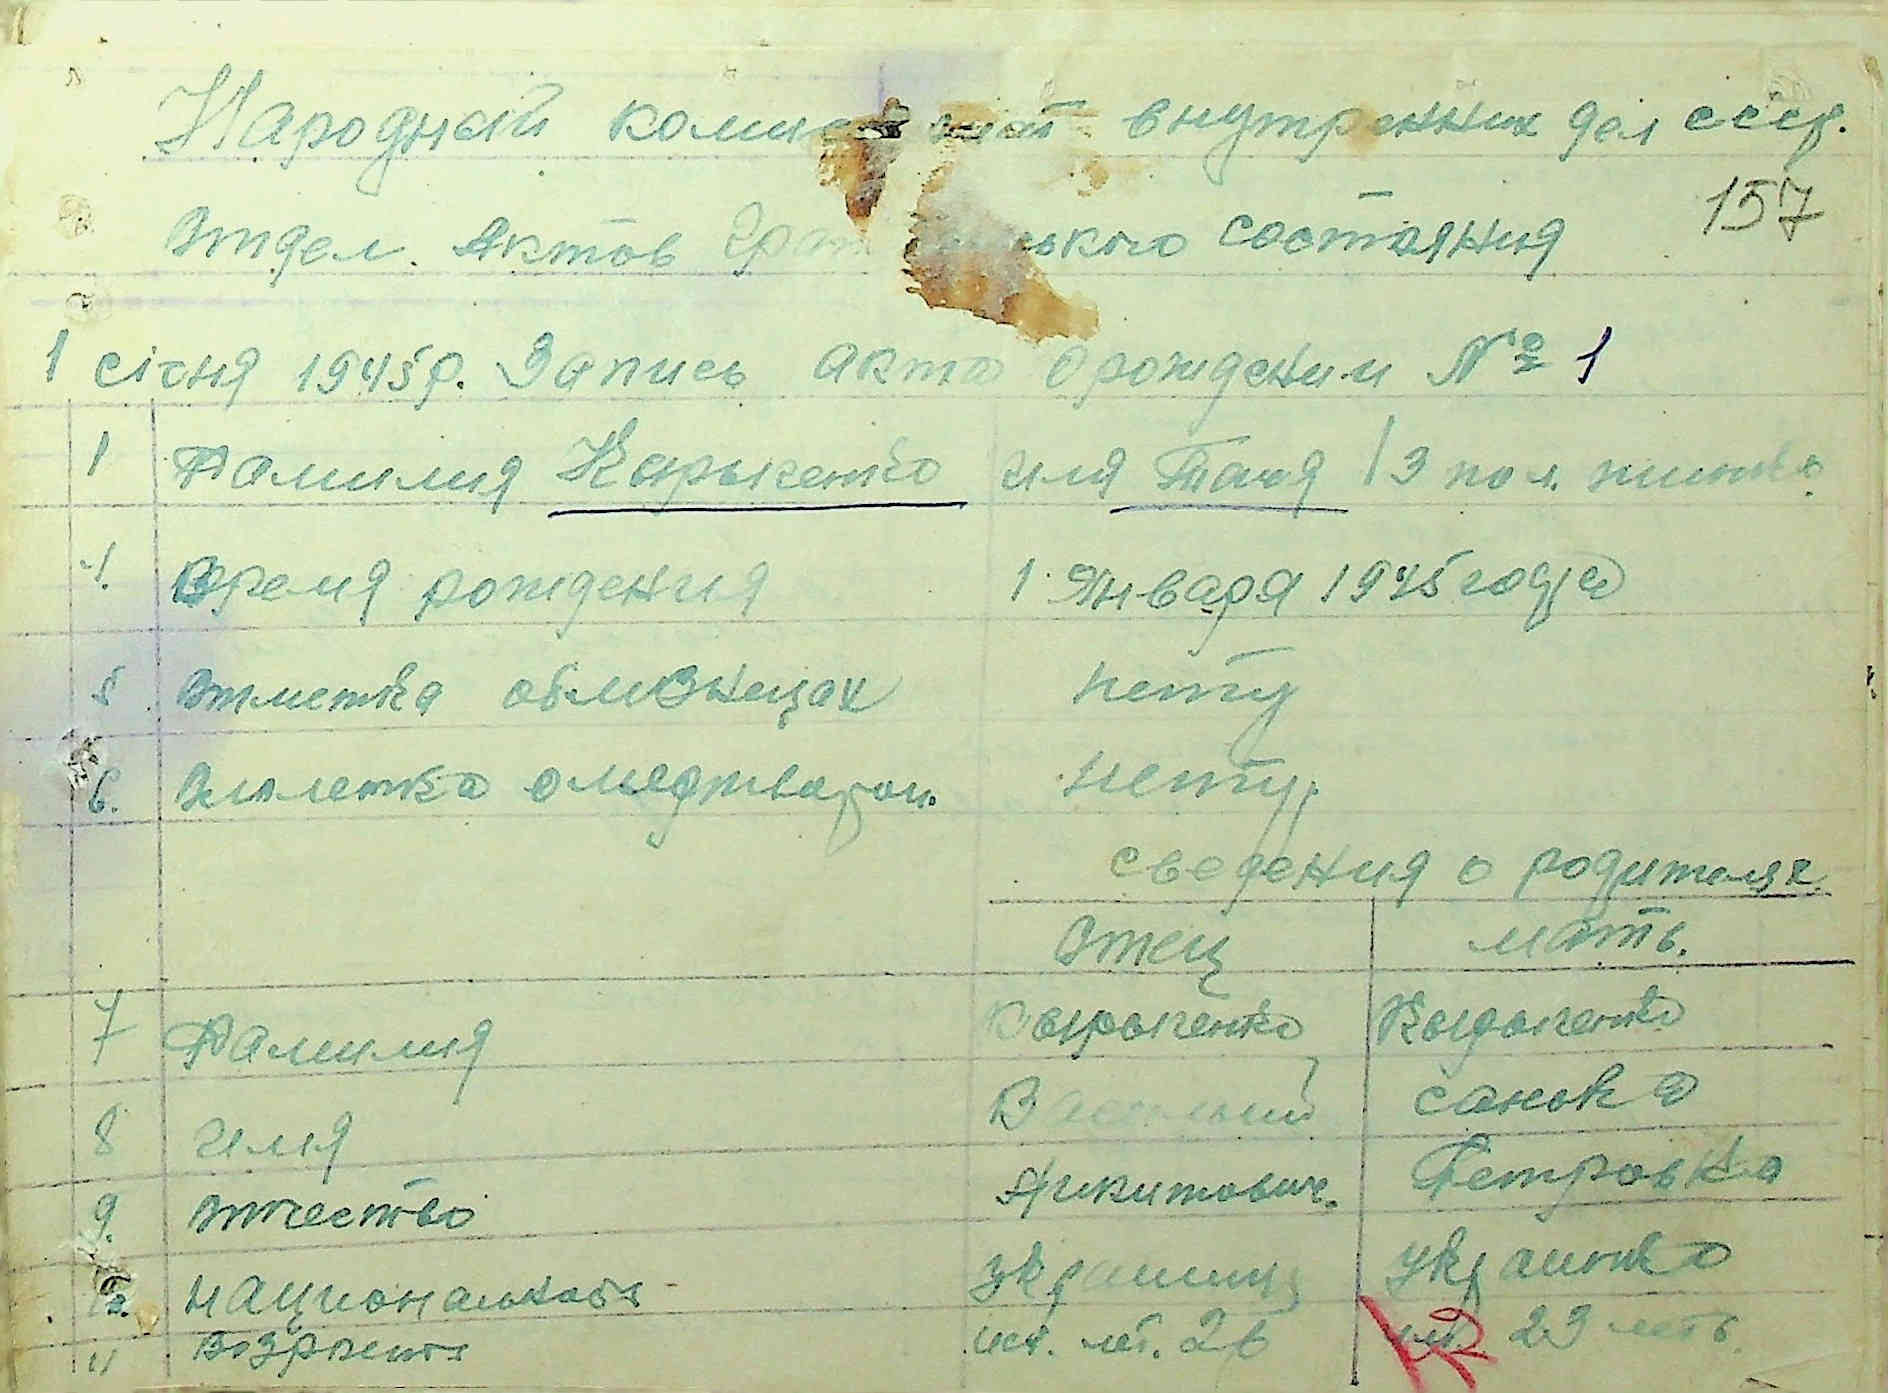 Народный коми внутренних дел СССР.
157
Отдел. Актов Граж ського состояния
1 січня 1945 р. Запись акта о рождении № 1
1 Фамилия Кырыченко имя Таня 3 пол. жинка
4. Время рождения 1 Января 1945 года
5 Отметка обл изнецах нету
6. Отметка о мертворож. нету.
сведения о родителях
Отец мать.
7 Фамилия Кырыченко Кырыченко
8 имя Василий санька
9. Отчество Никитович. Петровка
10. национальность украинец украинка
11 Возраст исп. лет. 26 23 леть